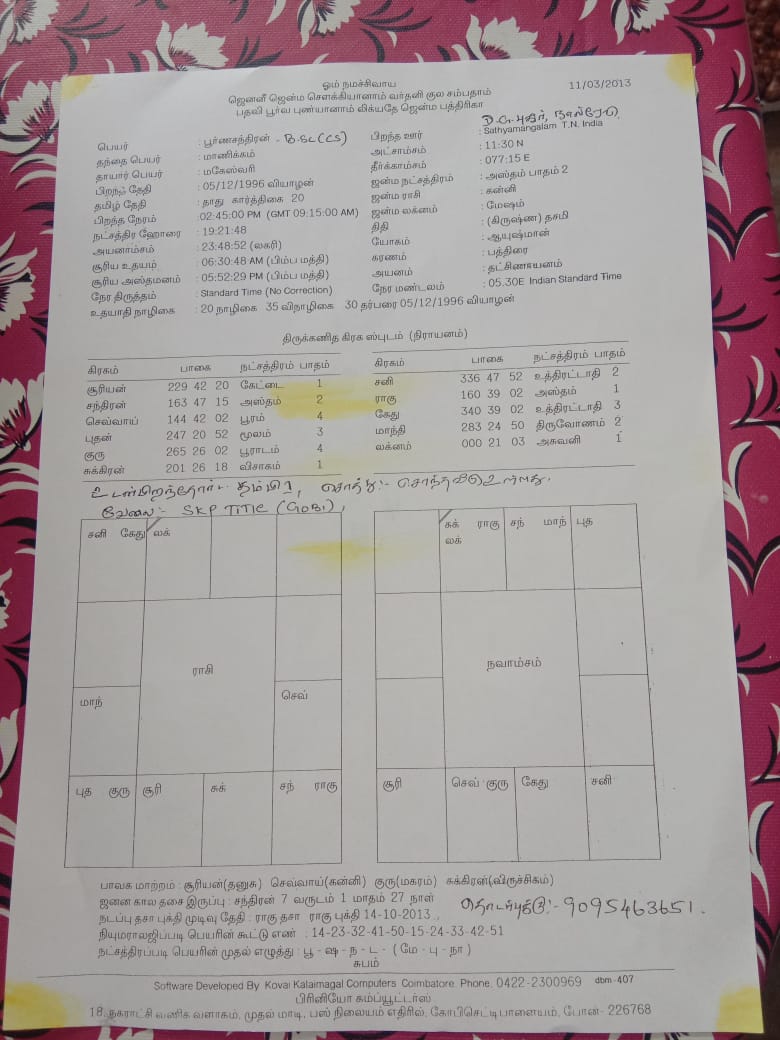 ஓம் நமச்சிவாய
11/03/2013
ஜெனனீ ஜென்ம சௌக்கியானாம் வர்தனி குல சம்பதாம்
பதவி பூர்வ புண்யானாம் லிக்யதே ஜென்ம பத்திரிகா
பெயர் : பூர்ணசந்திரன் - B.SC(CS)
தந்தை பெயர் : மாணிக்கம்
தாயார் பெயர் : மகேஸ்வரி
பிறந்த தேதி : 05/12/1996 வியாழன்
தமிழ் தேதி : தாது கார்த்திகை 20
பிறந்த நேரம் : 02:45:00 PM (GMT 09:15:00 AM)
நட்சத்திர ஹோரை : 19:21:48
அயனாம்சம் : 23:48:52 (லகரி)
சூரிய உதயம் : 06:30:48 AM (பிம்ப மத்தி)
சூரிய அஸ்தமனம் : 05:52:29 PM (பிம்ப மத்தி)
நேர திருத்தம் : Standard Time (No Correction)
உதயாதி நாழிகை : 20 நாழிகை 35 விநாழிகை 30 தர்பரை 05/12/1996 வியாழன்
D.G.புதூர்,
பிறந்த ஊர் : Sathyamangalam T.N. India
அட்சாம்சம் : 11:30 N
தீர்க்காம்சம் : 077:15 E
ஜன்ம நட்சத்திரம் : அஸ்தம் பாதம் 2
ஜன்ம ராசி : கன்னி
ஜன்ம லக்னம் : மேஷம்
திதி : (கிருஷ்ண) தசமி
யோகம் : ஆயுஷ்மான்
கரணம் : பத்திரை
அயனம் : தட்சிணாயனம்
நேர மண்டலம் : 05.30E Indian Standard Time
திருக்கணித கிரக ஸ்புடம் (நிராயனம்)
கிரகம் பாகை நட்சத்திரம் பாதம்
சூரியன் 229 42 20 கேட்டை 1
சந்திரன் 163 47 15 அஸ்தம் 2
செவ்வாய் 144 42 02 பூரம் 4
புதன் 247 20 52 மூலம் 3
குரு 265 26 02 பூராடம் 4
சுக்கிரன் 201 26 18 விசாகம் 1
கிரகம் பாகை நட்சத்திரம் பாதம்
சனி 336 47 52 உத்திரட்டாதி 2
ராகு 160 39 02 அஸ்தம் 1
கேது 340 39 02 உத்திரட்டாதி 3
மாந்தி 283 24 50 திருவோணம் 2
லக்னம் 000 21 03 அசுவனி 1
உடன்பிறந்தோர்:- தம்பி 1, சொத்து:- சொந்தவீடு உள்ளது.
வேலை:- SKP TITLE (GOBI),
சனி கேது லக்
ராசி
மாந்
செவ்
புத குரு சூரி சுக் சந் ராகு
சுக் ராகு சந் மாந் புத
லக்
நவாம்சம்
சூரி செவ் குரு கேது சனி
பாவக மாற்றம் : சூரியன்(தனுசு) செவ்வாய்(கன்னி) குரு(மகரம்) சுக்கிரன்(விருச்சிகம்)
ஜனன கால தசை இருப்பு : சந்திரன் 7 வருடம் 1 மாதம் 27 நாள்
நடப்பு தசா புக்தி முடிவு தேதி : ராகு தசா ராகு புக்தி 14-10-2013
தொடர்புக்கு:- 9095463651.
நியுமராலஜிப்படி பெயரின் கூட்டு எண் : 14-23-32-41-50-15-24-33-42-51
நட்சத்திரப்படி பெயரின் முதல் எழுத்து : பூ - ஷ - ந - ட - ( மே - பு - நா )
சுபம்
Software Developed By Kovai Kalaimagal Computers Coimbatore. Phone. 0422-2300969 dbm-407
பிரினியோ கம்ப்யூட்டர்ஸ்
18, தகராட்சி வணிக வளாகம், முதல் மாடி, பஸ் நிலையம் எதிரில், கோபிசெட்டிபாளையம், போன்- 226768